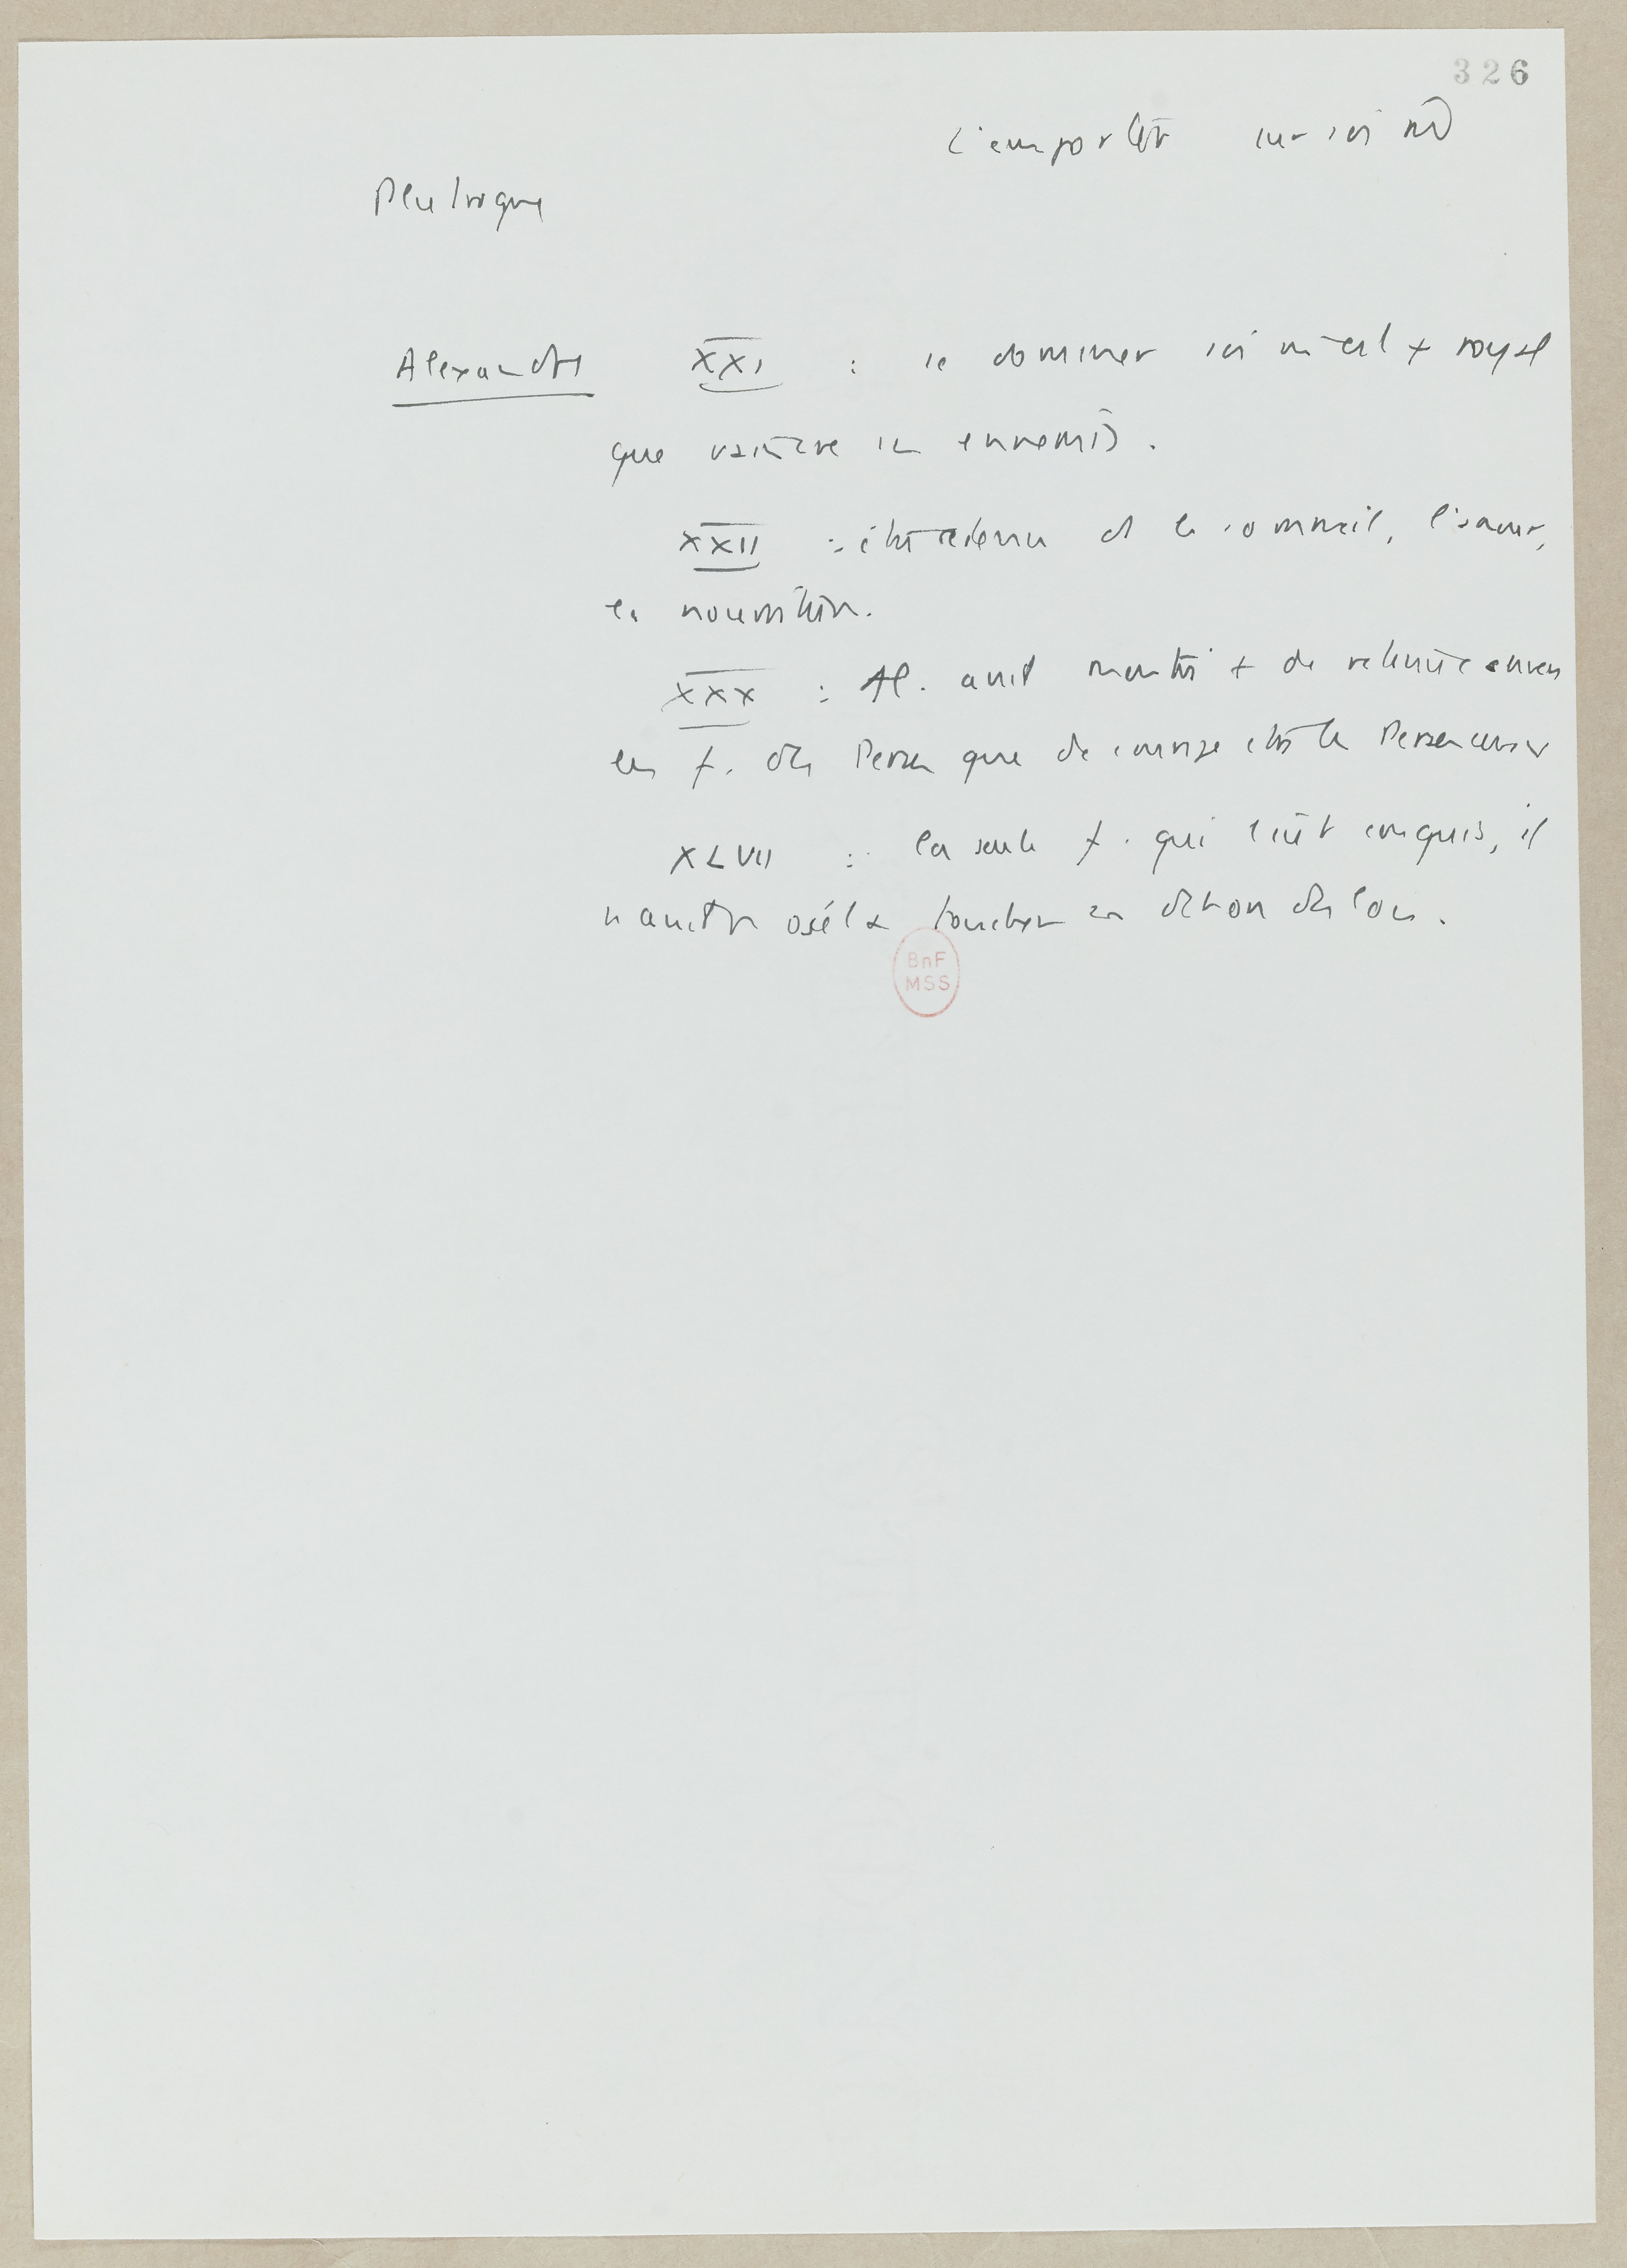 326
L'emporter sur soi mê
Plutarque
Alexandre XXI : se dominer soi même est + royal
que vaincre ses ennemis.
XXII : être retenu ds le sommeil, l'amour,
la nourriture.
XXX : Al. avait montré + de retenue envers
les f. des Perses que de courage contre les Perses
XLVII : la seule f. qui l'eût conquis, il
n'avait osé la toucher en dehors des lois.
BnF
MSS